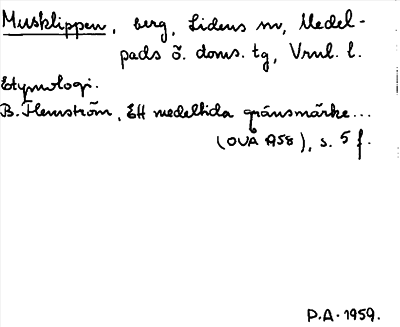 Musklippen, berg, Lidens sn, Medel-
pads ö. doms. tg, Vrnl. l.
Etymologi.
B. Flemström, Ett medeltida gränsmärke...
(OVÅ 1958), s. 5 f.
P.A. 1959.